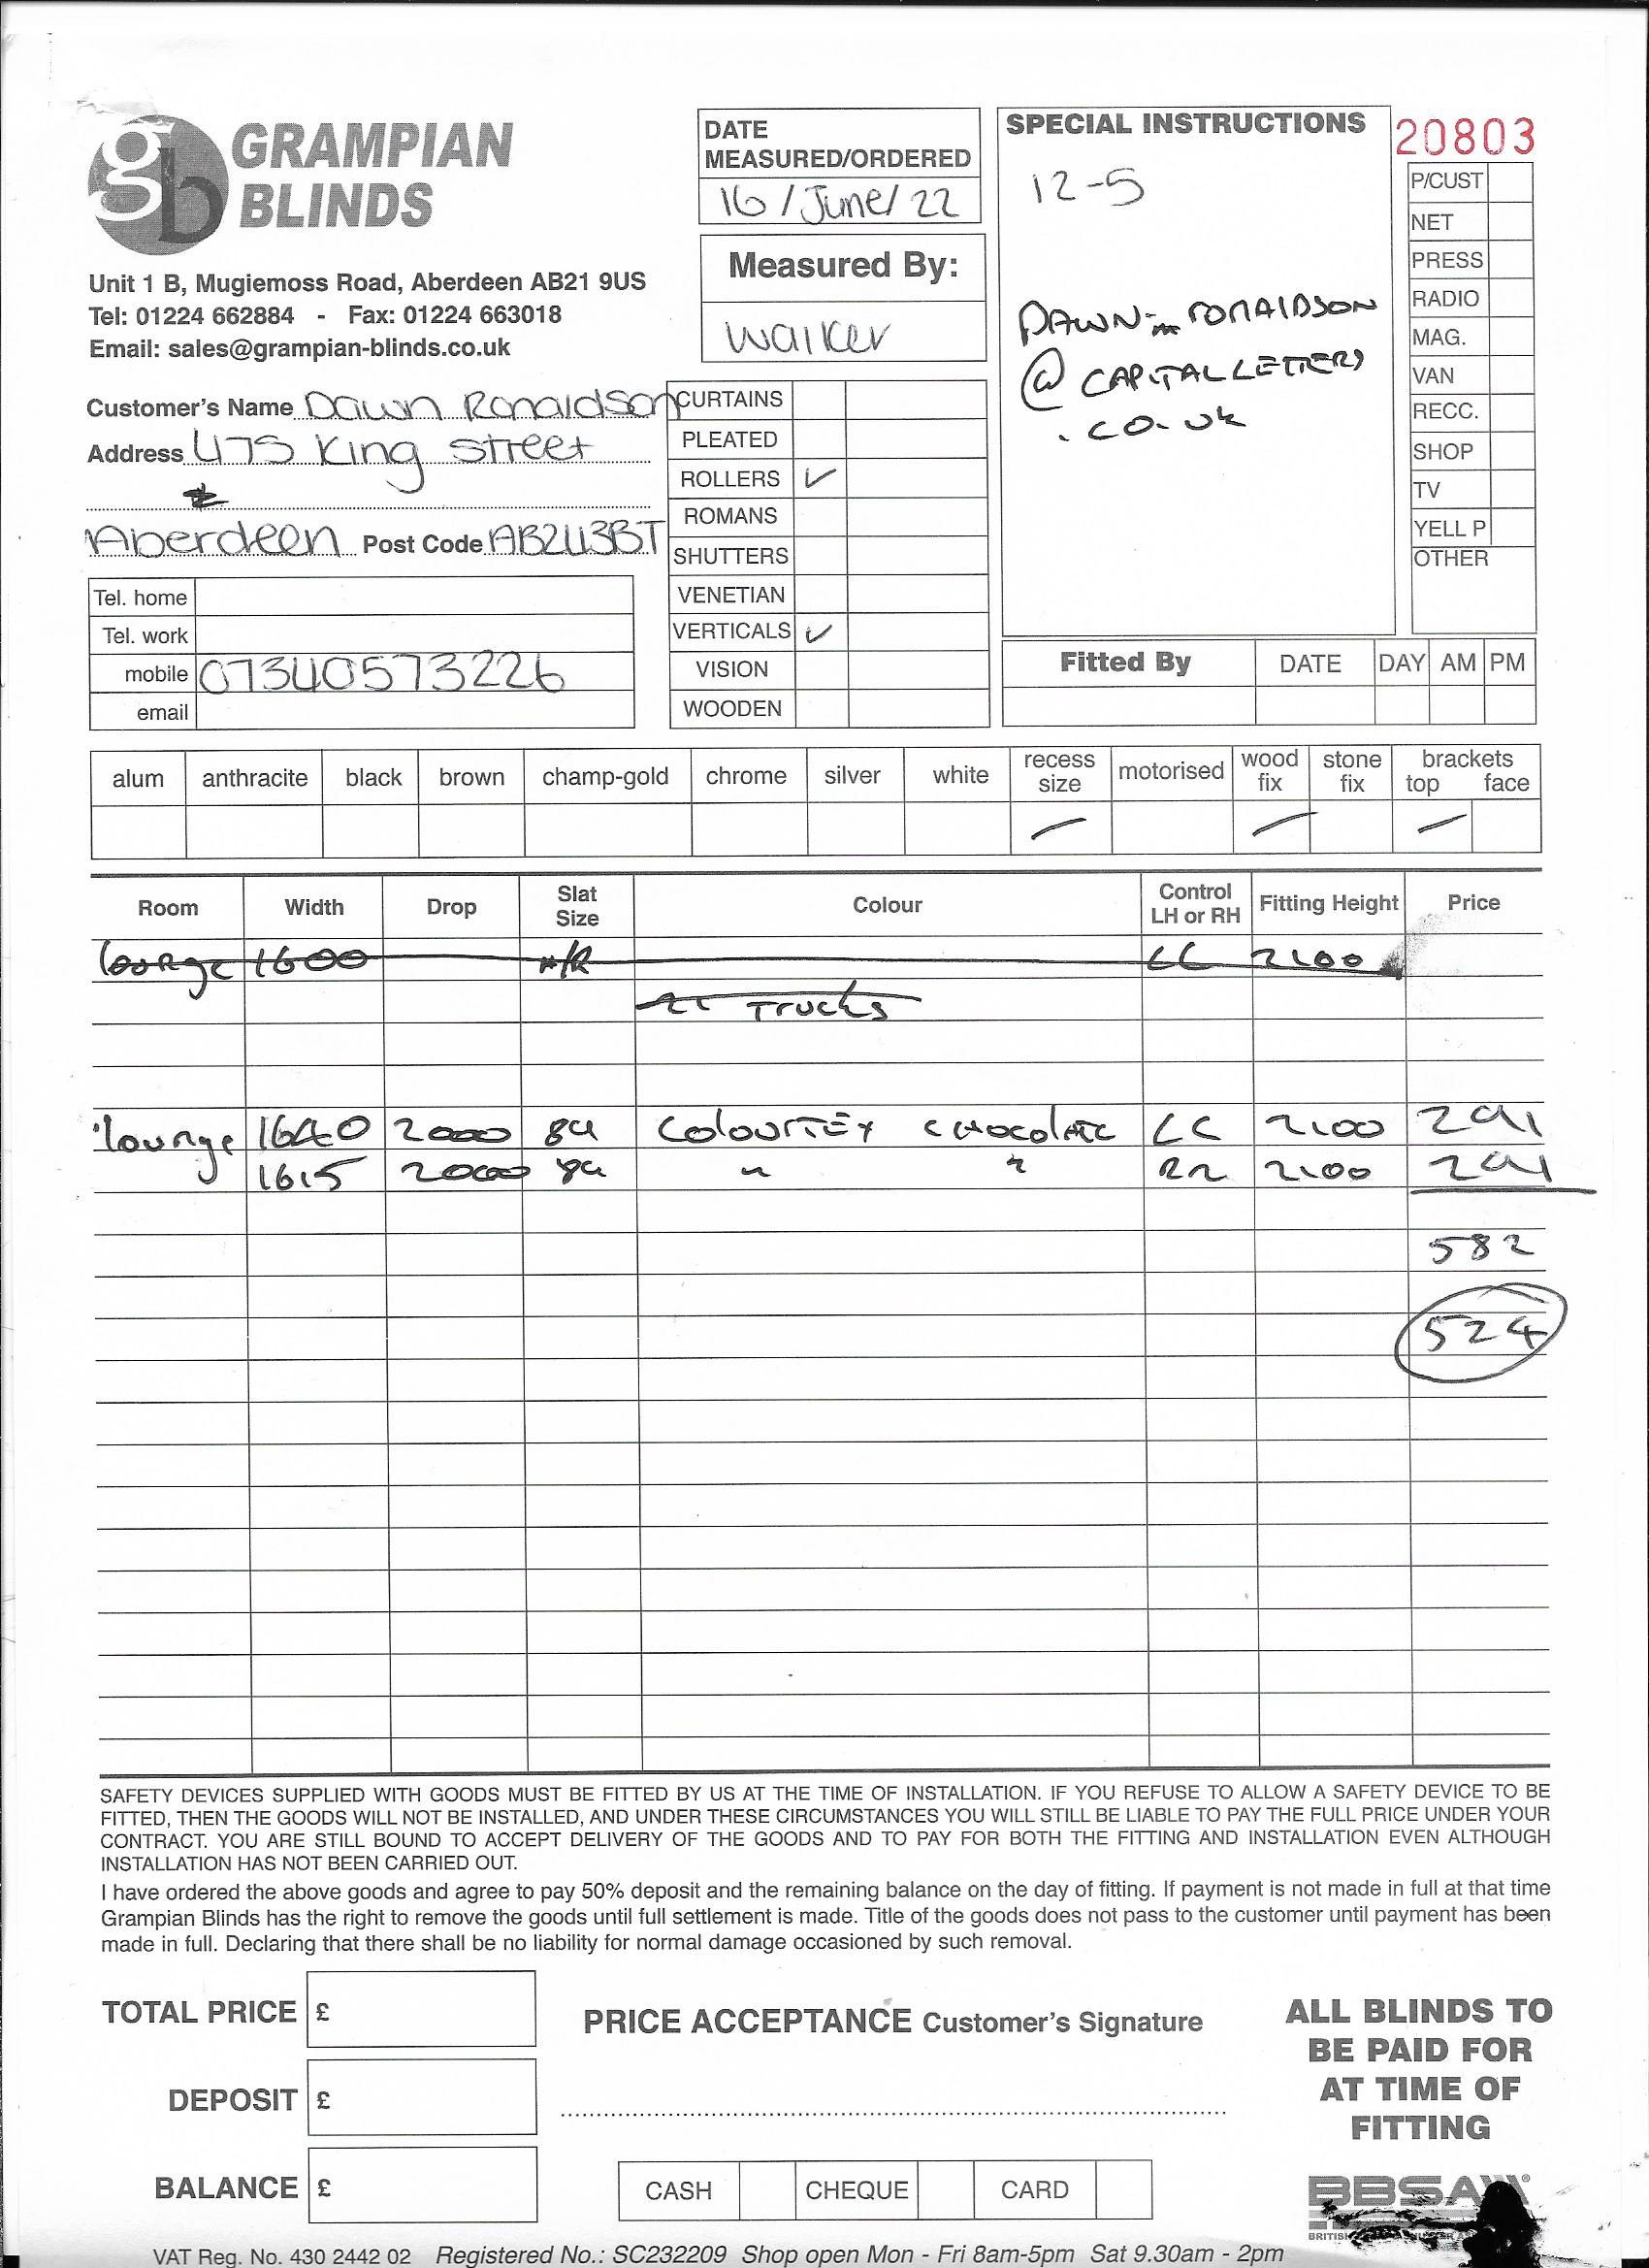 GRAMPIAN
BLINDS
Unit 1 B, Mugiemoss Road, Aberdeen AB21 9US
Tel: 01224 662884 - Fax: 01224 663018
Email: sales@grampian-blinds.co.uk
DATE
MEASURED/ORDERED
16 / June / 22
Measured By:
Walker
SPECIAL INSTRUCTIONS
12-5
DAWN-m RONALDSON
@ CAPITAL LETTERS
.co.uk
20803
P/CUST
NET
PRESS
RADIO
MAG.
VAN
RECC.
SHOP
TV
YELL P
OTHER
Customer's Name Dawn Ronaldson
Address 475 King Street
Aberdeen Post Code AB243BT
Tel. home
Tel. work
mobile 07340573226
email
CURTAINS
PLEATED
ROLLERS ✓
ROMANS
SHUTTERS
VENETIAN
VERTICALS ✓
VISION
WOODEN
Fitted By DATE DAY AM PM
alum anthracite black brown champ-gold chrome silver white recess size motorised wood fix stone fix brackets top face
Room Width Drop Slat Size Colour Control LH or RH Fitting Height Price
lounge 1600 H/R LC 2100
Trucks
lounge 1640 2000 89 Colourtex Chocolate LC 2100 291
1615 2000 89 " " RR 2100 291
582
524
SAFETY DEVICES SUPPLIED WITH GOODS MUST BE FITTED BY US AT THE TIME OF INSTALLATION. IF YOU REFUSE TO ALLOW A SAFETY DEVICE TO BE
FITTED, THEN THE GOODS WILL NOT BE INSTALLED, AND UNDER THESE CIRCUMSTANCES YOU WILL STILL BE LIABLE TO PAY THE FULL PRICE UNDER YOUR
CONTRACT. YOU ARE STILL BOUND TO ACCEPT DELIVERY OF THE GOODS AND TO PAY FOR BOTH THE FITTING AND INSTALLATION EVEN ALTHOUGH
INSTALLATION HAS NOT BEEN CARRIED OUT.
I have ordered the above goods and agree to pay 50% deposit and the remaining balance on the day of fitting. If payment is not made in full at that time
Grampian Blinds has the right to remove the goods until full settlement is made. Title of the goods does not pass to the customer until payment has been
made in full. Declaring that there shall be no liability for normal damage occasioned by such removal.
TOTAL PRICE £
DEPOSIT £
BALANCE £
PRICE ACCEPTANCE Customer's Signature
CASH CHEQUE CARD
ALL BLINDS TO
BE PAID FOR
AT TIME OF
FITTING
BBSA
BRITISH
VAT Reg. No. 430 2442 02 Registered No.: SC232209 Shop open Mon - Fri 8am-5pm Sat 9.30am - 2pm